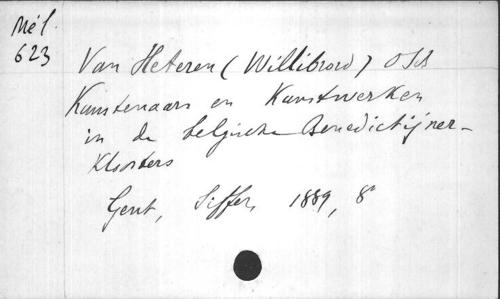 Mél.
623
Van Heteren (Willibrord) OSB
Kunstenaars en Kunstwerken
in de belgische Benedictijner-
Kloosters
Gent, Siffer, 1889, 8°